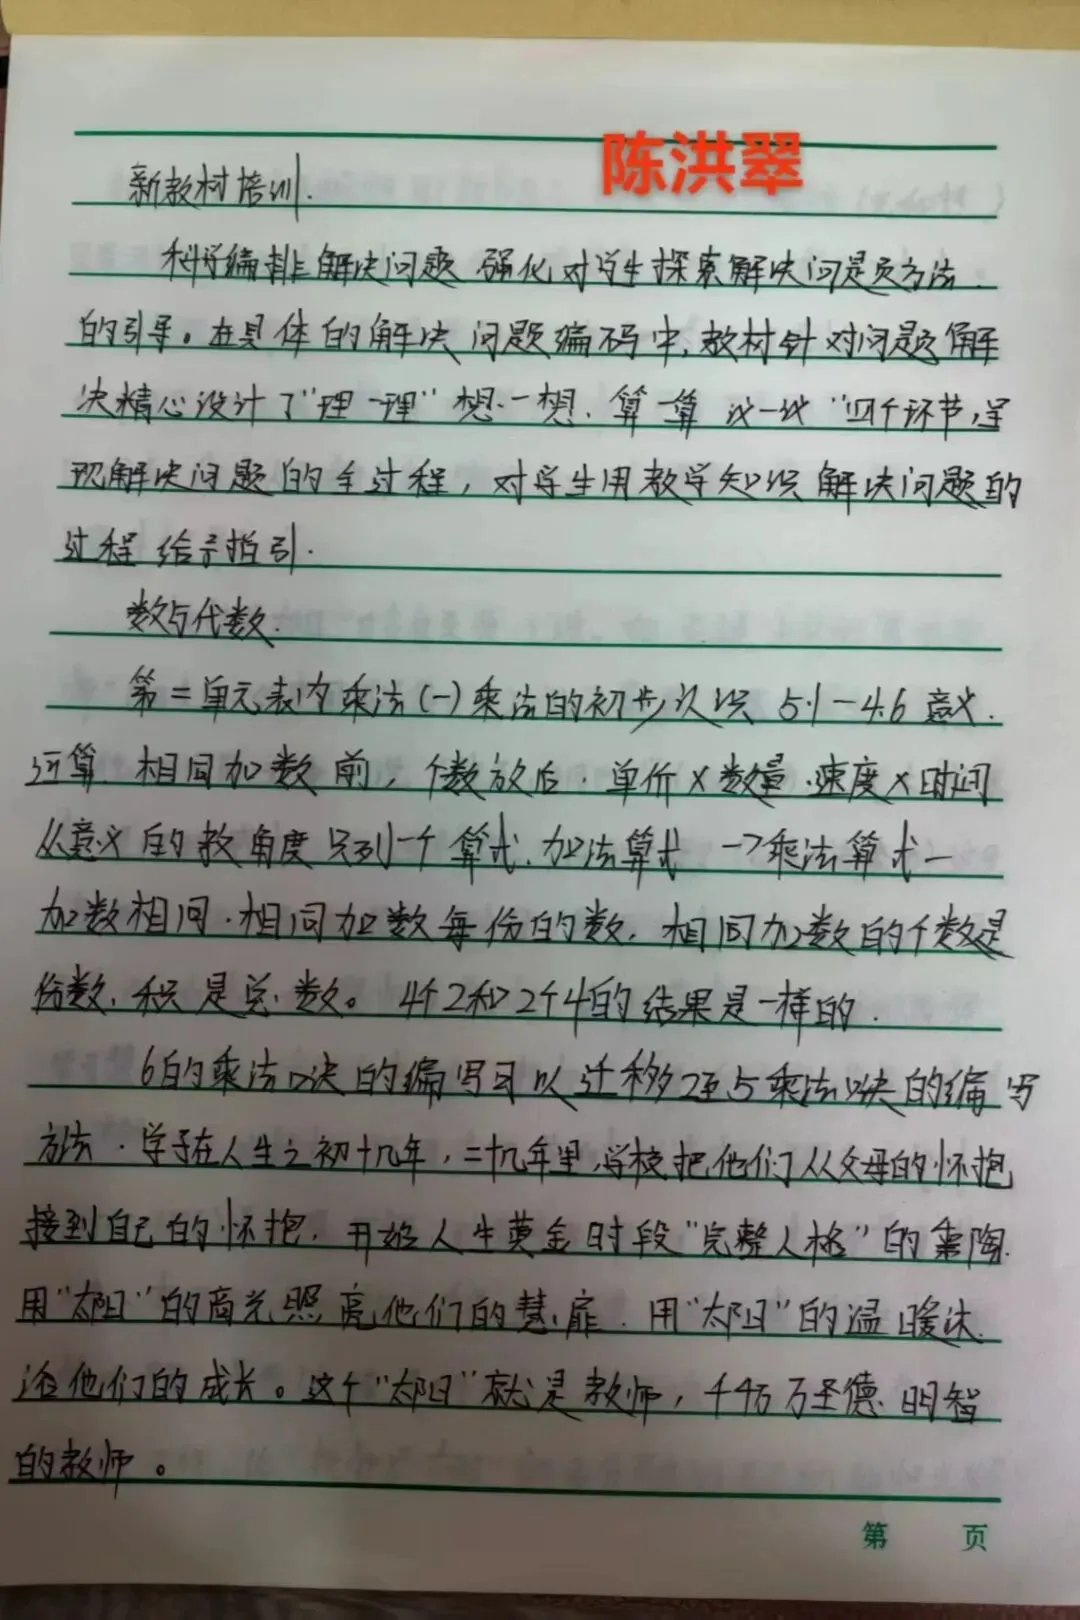 陈洪翠
新教材培训.
科学编排解决问题 强化对学生探索解决问题页方法.
的引导。在具体的解决问题编码中,教材针对问题解
决精心设计了"理一理"想一想、算一算 议一议"四个环节,呈
现解决问题的全过程,对学生用教学知识解决问题的
过程给予指引.
数与代数.
第二单元表内乘法(一)乘法的初步认识 5.1-4.6 意义.
运算.相同加数前,个数放后.单价×数量.速度×时间
从意义的教角度只列一个算式.加法算式 →乘法算式—
加数相同.相同加数每份的数.相同加数的个数是
份数,积是总数。4个2和2个4的结果是一样的.
6的乘法口诀的编写可以迁移2至5乘法口诀的编写
方法.学子在人生之初十几年,二十几年里,学校把他们从父母的怀抱
接到自己的怀抱,开始人生黄金时段"完整人格"的熏陶.
用"太阳"的高光照亮他们的慧扉.用"太阳"的温暖沐
浴他们的成长。这个"太阳"就是教师,千千万万圣德.明智
的教师。
第 页